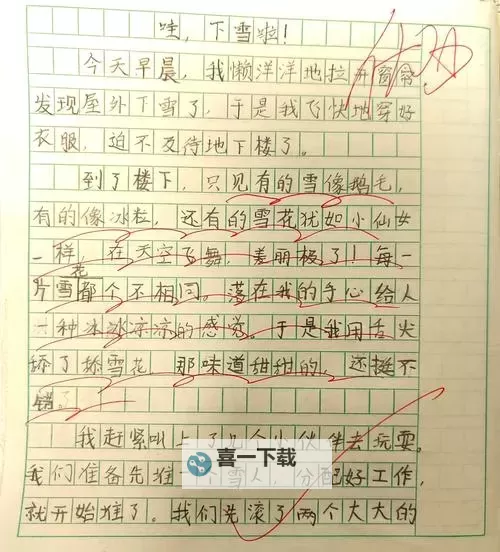 哇，下雪啦！
今天早晨，我懒洋洋地拉开窗帘
发现屋外下雪了，于是我飞快地穿好
衣服，迫不及待地下楼了。
到了楼下，只见有的雪像鹅毛，
有的像冰粒，还有的雪花犹如小仙女
一样，在天空飞舞，美丽极了！每一
片雪花都个不相同。落在我的手心给人
一种冰冰凉凉的感觉。于是我用舌尖
舔了舔雪花，那味道甜甜的，还挺不
错了
我赶紧叫上了几个小伙伴去玩耍。
我们准备先堆一个雪人，分配好工作，
就开始堆了。我们先滚了两个大大的
喜一下载